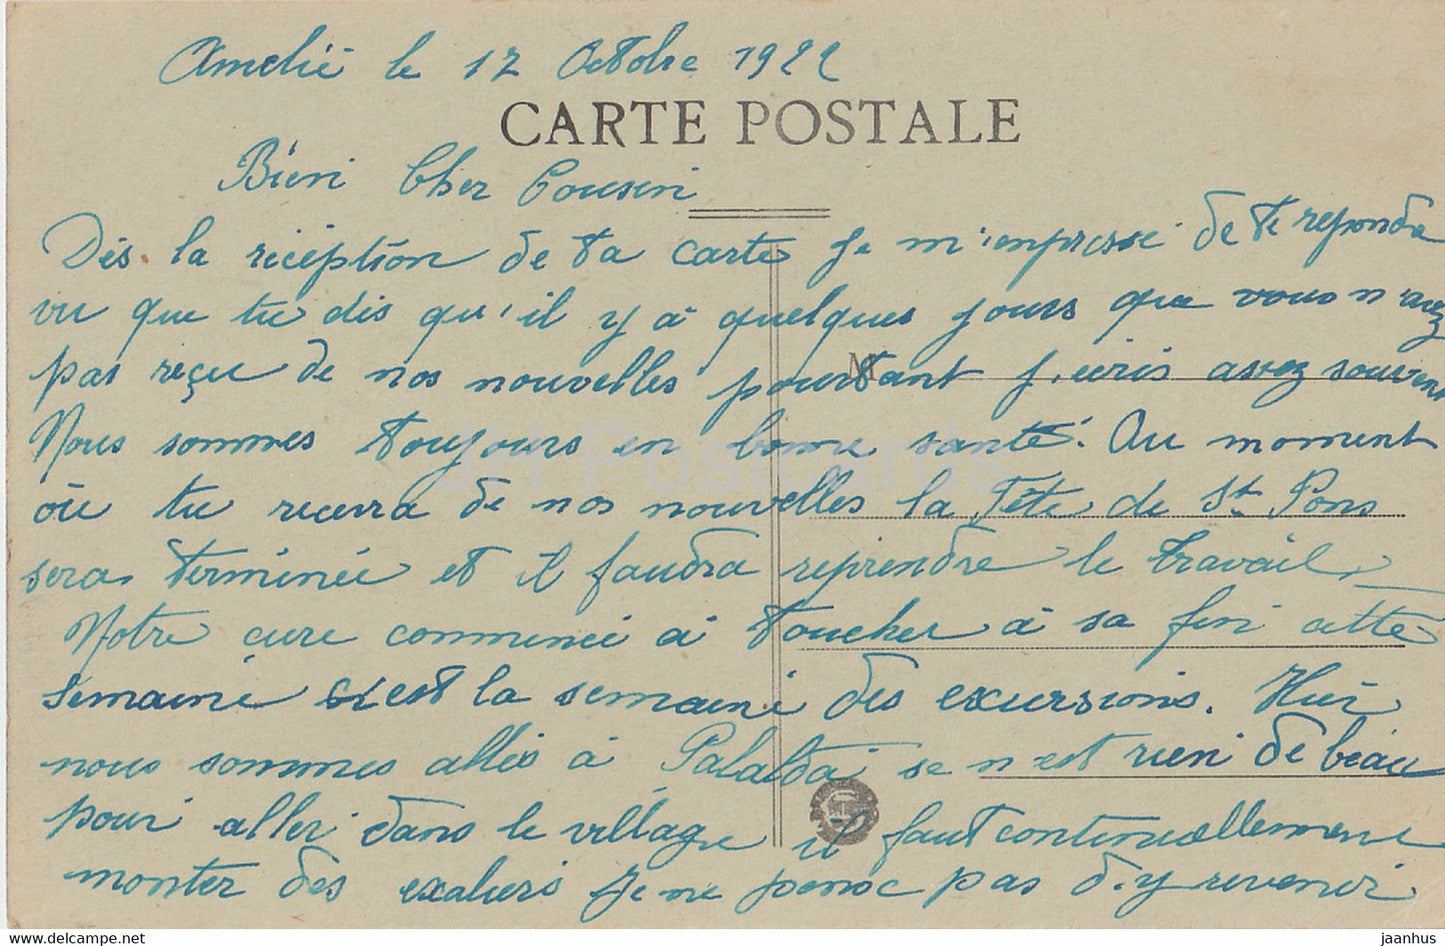 Amelie le 12 Octobre 1922
CARTE POSTALE
Bien Cher Cousin
Dès la réception de ta carte Je m'empresse de te reponde
vu que tu dis qu'il y a quelques jours que vous n'avez
pas reçu de nos nouvelles pourtant j'ecris assez souvent
M
Nous sommes toujours en bonne santé. Au moment
où tu recevra de nos nouvelles la Fête de St Pons
sera terminée et il faudra reprendre le travail
Notre cure commence à toucher à sa fin cette
semaine c'est la semaine des excursions. Hier
nous sommes allés à Palalda se n'est rien de beau
pour aller dans le village il faut continuellement
monter des escaliers Je ne pense pas d'y revenir
JH Postcards
jaanhus — https://jaan